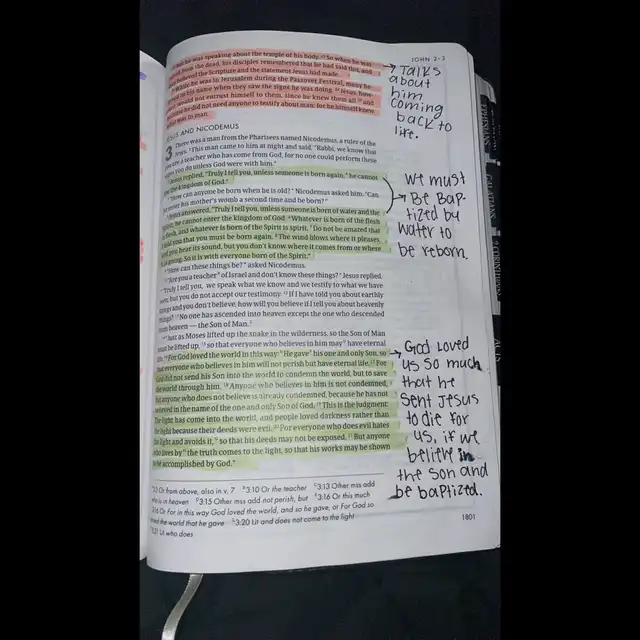 JOHN 2-3
he was speaking about the temple of his body. 22 So when he was
from the dead, his disciples remembered that he had said this, and
believed the Scripture and the statement Jesus had made.
While he was in Jerusalem during the Passover Festival, many be-
in his name when they saw the signs he was doing. 24 Jesus, how-
would not entrust himself to them, since he knew them all 25 and
because he did not need anyone to testify about man; for he himself knew
what was in man.
→ Talks
about
him
coming
back to
life.
JESUS AND NICODEMUS
3 There was a man from the Pharisees named Nicodemus, a ruler of the
Jews. 2 This man came to him at night and said, "Rabbi, we know that
you are a teacher who has come from God, for no one could perform these
signs you do unless God were with him."
3 Jesus replied, "Truly I tell you, unless someone is born again, he cannot
see the kingdom of God."
"How can anyone be born when he is old?" Nicodemus asked him. "Can
he enter his mother's womb a second time and be born?"
Jesus answered, "Truly I tell you, unless someone is born of water and the
he cannot enter the kingdom of God. 6 Whatever is born of the flesh
is flesh, and whatever is born of the Spirit is spirit. 7 Do not be amazed that
I told you that you must be born again. 8 The wind blows where it pleases,
and you hear its sound, but you don't know where it comes from or where
it is going. So it is with everyone born of the Spirit."
We must
→ Be Bap-
tized by
water to
be reborn.
9 "How can these things be?" asked Nicodemus.
"Are you a teacher of Israel and don't know these things?" Jesus replied.
"Truly I tell you, we speak what we know and we testify to what we have
seen, but you do not accept our testimony. 12 If I have told you about earthly
things and you don't believe, how will you believe if I tell you about heavenly
things? 13 No one has ascended into heaven except the one who descended
from heaven — the Son of Man.
"Just as Moses lifted up the snake in the wilderness, so the Son of Man
must be lifted up, 15 so that everyone who believes in him may have eternal
life. 16 For God loved the world in this way: He gave his one and only Son, so
that everyone who believes in him will not perish but have eternal life. 17 For
God did not send his Son into the world to condemn the world, but to save
the world through him. 18 Anyone who believes in him is not condemned,
but anyone who does not believe is already condemned, because he has not
believed in the name of the one and only Son of God. 19 This is the judgment:
The light has come into the world, and people loved darkness rather than
the light because their deeds were evil. 20 For everyone who does evil hates
the light and avoids it, so that his deeds may not be exposed. 21 But anyone
who lives by the truth comes to the light, so that his works may be shown
to be accomplished by God."
→ God loved
us so much
that he
sent Jesus
to die for
us, if we
belithe in
the Son and
be baptized.
3:3 Or from above, also in v. 7 3:10 Or the teacher 3:13 Other mss add
who is in heaven 3:15 Other mss add not perish, but 3:16 Or this much
3:16 Or For in this way God loved the world, and so he gave, or For God so
loved the world that he gave 3:20 Lit and does not come to the light
3:21 Lit who does
1801